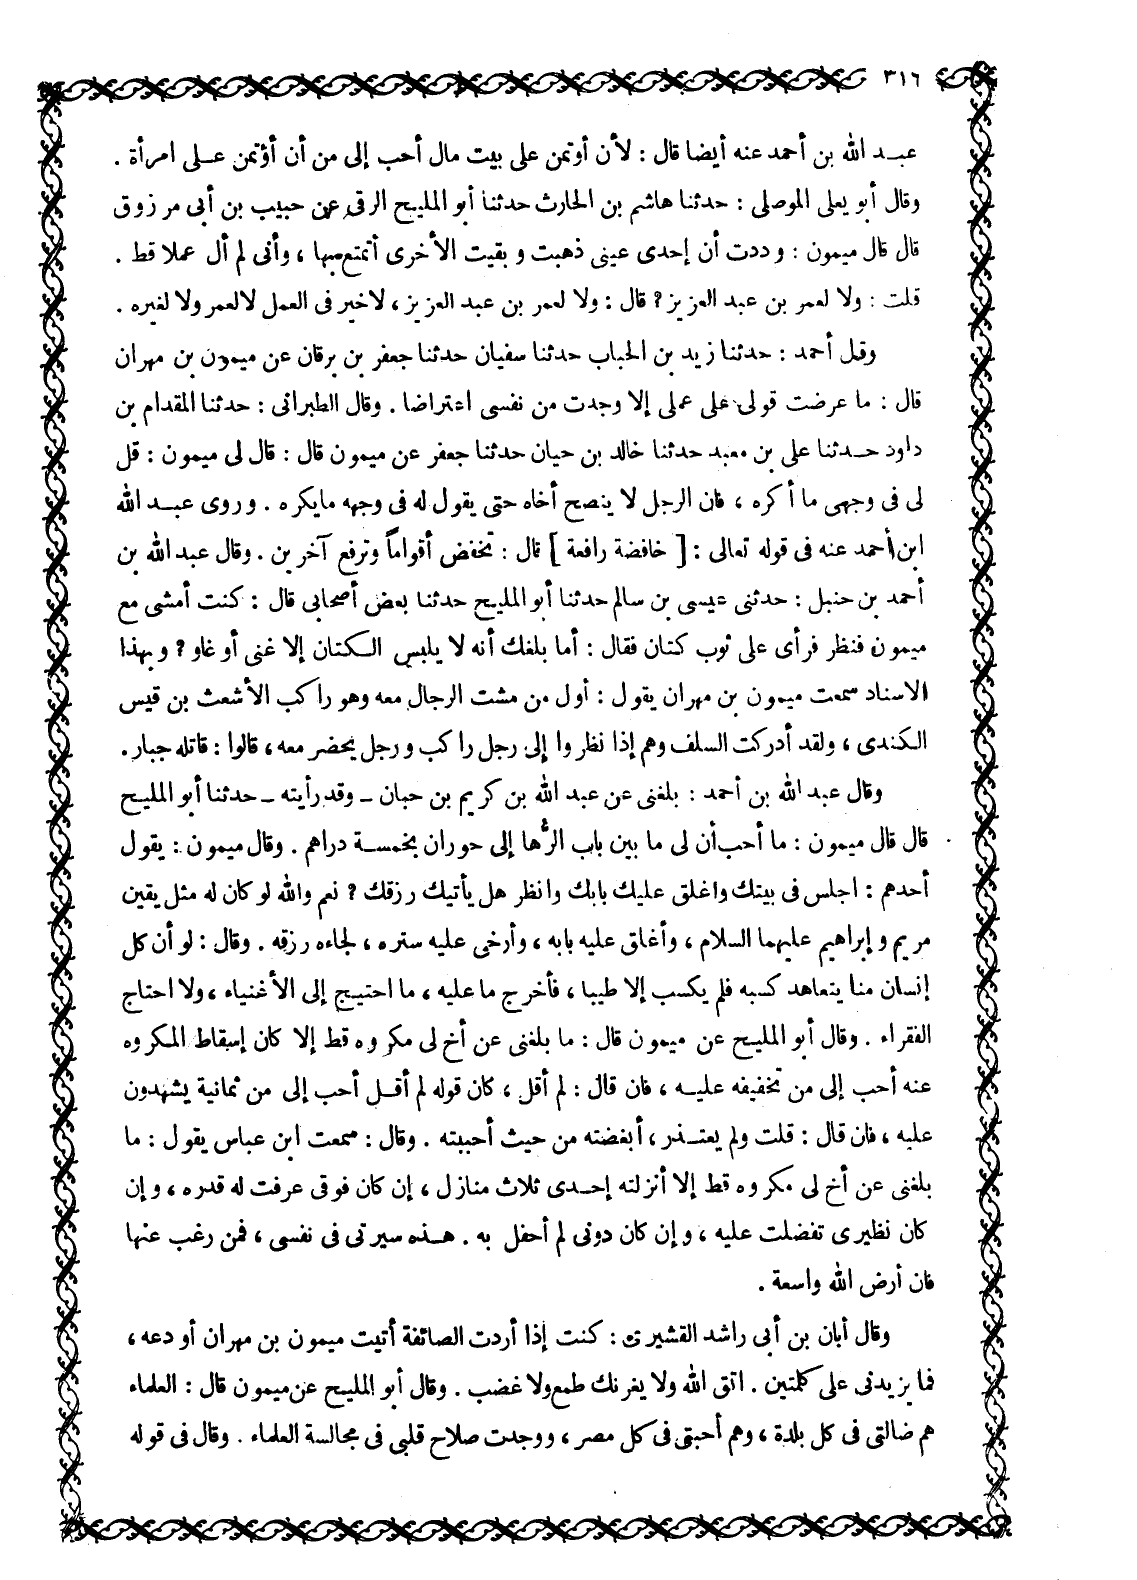 ٣١٦
عبـد الله بن أحمد عنه أيضا قال : لأن أوتمن على بيت مال أحب إلى من أن أؤتمن عـلى امرأة .
وقال أبو يعلى الموصلى : حدثنا هاشم بن الحارث حدثنا أبو المليح الرقى عن حبيب بن أبى مرزوق
قال قال ميمون : وددت أن إحدى عينى ذهبت وبقيت الأخرى أتمتع بها ، وأنى لم أل عملا قط .
قلت : ولا لعمر بن عبد العزيز ? قال : ولا لعمر بن عبد العزيز ، لا خير فى العمل لا لعمر ولا لغيره .
وقل أحمد : حدثنا زيد بن الحباب حدثنا سفيان حدثنا جعفر بن برقان عن ميمون بن مهران
قال : ما عرضت قولى على عملى إلا وجدت من نفسى اعتراضا . وقال الطبرانى : حدثنا المقدام بن
داود حـدثنا على بن معبد حدثنا خالد بن حيان حدثنا جعفر عن ميمون قال : قال لى ميمون : قل
لى فى وجهى ما أكره ، فان الرجل لا ينصح أخاه حتى يقول له فى وجهه مايكره . وروى عبـد الله
ابن أحمد عنه فى قوله تعالى : [ خافضة رافعة ] قال : تخفض أقواماً وترفع آخرين . وقال عبد الله بن
أحمد بن حنبل : حدثنى عيسى بن سالم حدثنا أبو المليـح حدثنا بعض أصحابى قال : كنت أمشى مع
ميمون فنظر فرأى على ثوب كتان فقال : أما بلغك أنه لا يلبس الـكتان إلا غنى أو غاو ? وبهذا
الاسناد سمعت ميمون بن مهران يقول : أول من مشت الرجال معه وهو راكب الأشعث بن قيس
الـكندى ، ولقد أدركت السلف وهم إذا نظروا إلى رجل راكب ورجل يحضر معه ، قالوا : قاتله جبار .
وقال عبد الله بن أحمد : بلغنى عن عبد الله بن كريم بن حبان ـ وقد رأيته ـ حدثنا أبو المليـح
قال قال ميمون : ما أحب أن لى ما بين باب الرُّها إلى حوران بخمسـة دراهم . وقال ميمون : يقول
أحدهم : اجلس فى بيتك واغلق عليك بابك وانظر هل يأتيك رزقك ? نعم والله لو كان له مثل يقين
مريم وإبراهيم عليهما السلام ، وأغلق عليه بابه ، وأرخى عليه ستره ، لجاءه رزقه . وقال : لو أن كل
إنسان منا يتعاهد كسبه فلم يكسب إلا طيبا ، فأخرج ما عليه ، ما احتيـج إلى الأغنياء ، ولا احتاج
الفقراء . وقال أبو المليـح عن ميمون قال : ما بلغنى عن أخ لى مكروه قط إلا كان إسقاط المـكروه
عنه أحب إلى من تخفيفه عليـه ، فان قال : لم أقل ، كان قوله لم أقـل أحب إلى من ثمانية يشهدون
عليه ، فان قال : قلت ولم يعتـذر ، أبغضته من حيث أحببته . وقال : سمعت ابن عباس يقول : ما
بلغنى عن أخ لى مكروه قط إلا أنزلته إحـدى ثلاث منازل ، إن كان فوقى عرفت له قدره ، وإن
كان نظيرى تفضلت عليه ، وإن كان دونى لم أحفل به . هـذه سيرتى فى نفسى ، فمن رغب عنها
فان أرض الله واسعة .
وقال أبان بن أبى راشد القشيرى : كنت إذا أردت الصائفة أتيت ميمون بن مهران أودعه ،
فما يزيدنى على كلمتين . اتق الله ولا يغرنك طمع ولا غضب . وقال أبو المليـح عن ميمون قال : العلماء
هم ضالتى فى كل بلدة ، وهم أحبتى فى كل مصر ، ووجدت صلاح قلبى فى مجالسة العلماء . وقال فى قوله